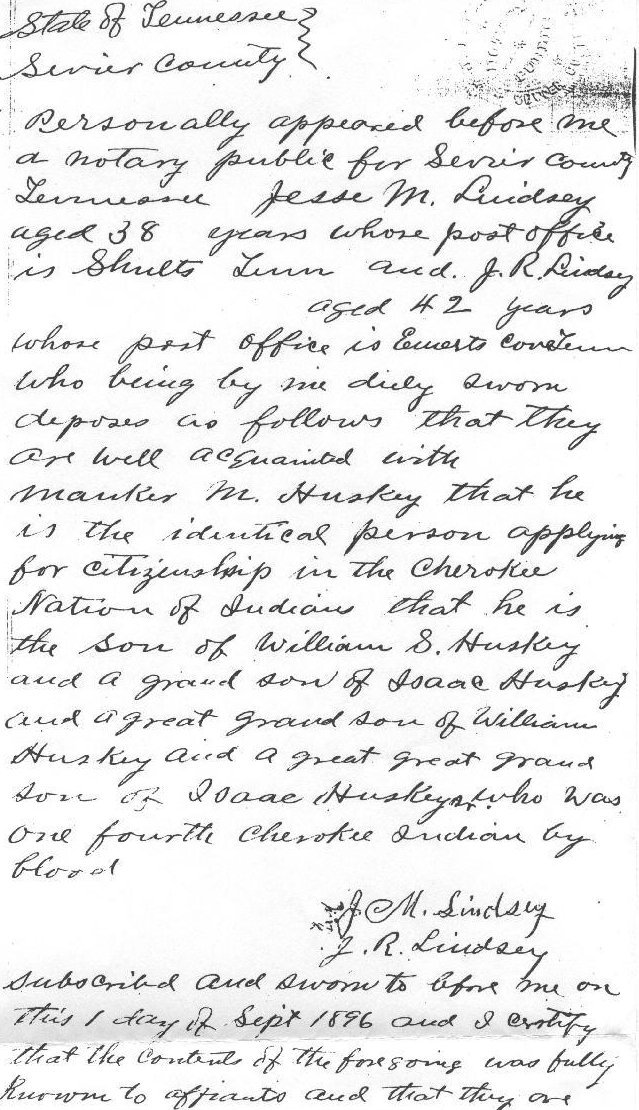 State of Tennessee
Sevier County
Personally appeared before me
a notary public for Sevier County
Tennessee Jesse M. Lindsey
aged 38 years whose post office
is Shults Tenn and. J. R. Lindsey
aged 42 years
whose post office is Emerts Cove Tenn
who being by me duly sworn
deposes as follows that they
are well acquainted with
Manker M. Huskey that he
is the identical person applying
for citizenship in the Cherokee
Nation of Indians that he is
the son of William S. Huskey
and a grand son of Isaac Huskey
and a great grand son of William
Huskey and a great great grand
son of Isaac Huskey sr. who was
one fourth Cherokee Indian by
blood
J. M. Lindsey
J. R. Lindsey
subscribed and sworn to before me on
this 1 day of Sept 1896 and I certify
that the contents of the foregoing was fully
known to affiants and that they are